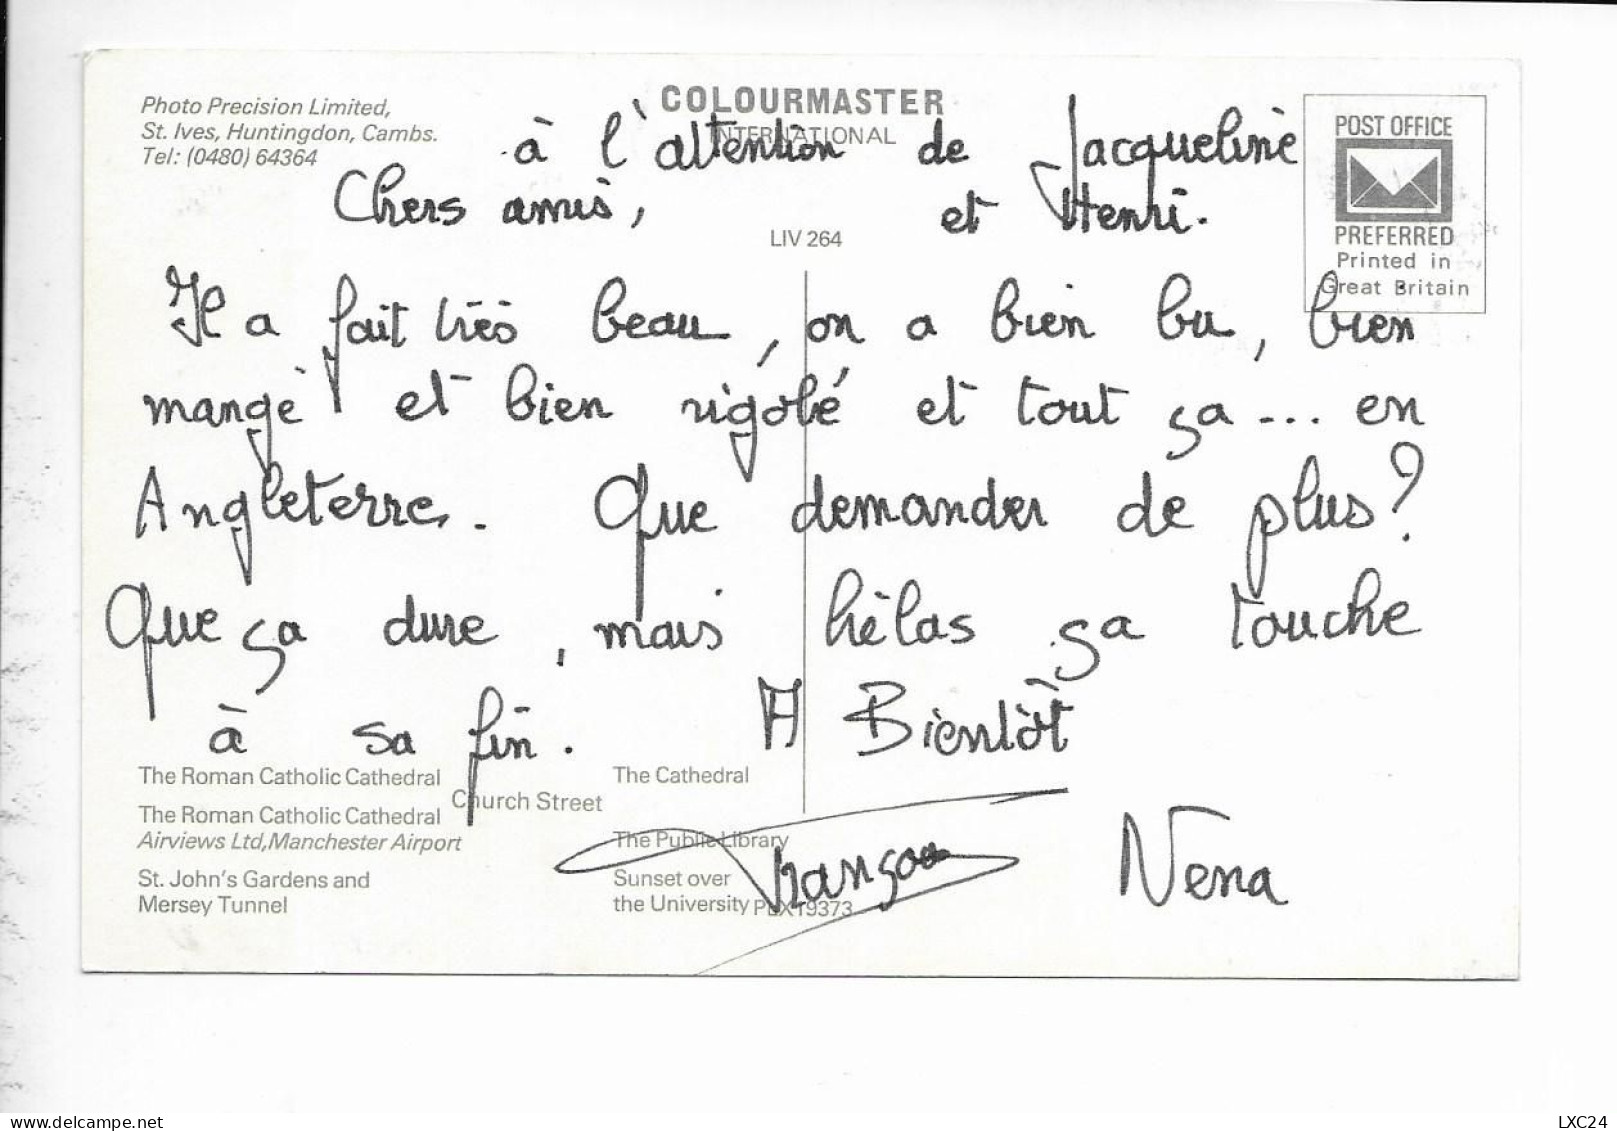 Photo Precision Limited,
St. Ives, Huntingdon, Cambs.
Tel: (0480) 64364
COLOURMASTER
INTERNATIONAL
POST OFFICE
PREFERRED
Printed in
Great Britain
à l'attention de Jacqueline
Chers amis, et Henri.
LIV 264
Il a fait très beau, on a bien bu, bien
mangé et bien rigolé et tout ça... en
Angleterre. Que demander de plus?
Que ça dure, mais hélas ça touche
à sa fin. A Bientôt
The Roman Catholic Cathedral
The Cathedral
Church Street
The Roman Catholic Cathedral
Airviews Ltd, Manchester Airport
The Public Library
St. John's Gardens and
Mersey Tunnel
Sunset over
the University
PLX19373
Nena
LXC24